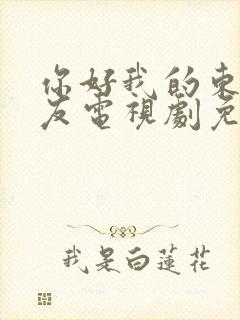 你好我的東
友電視劇免
我是白蓮花